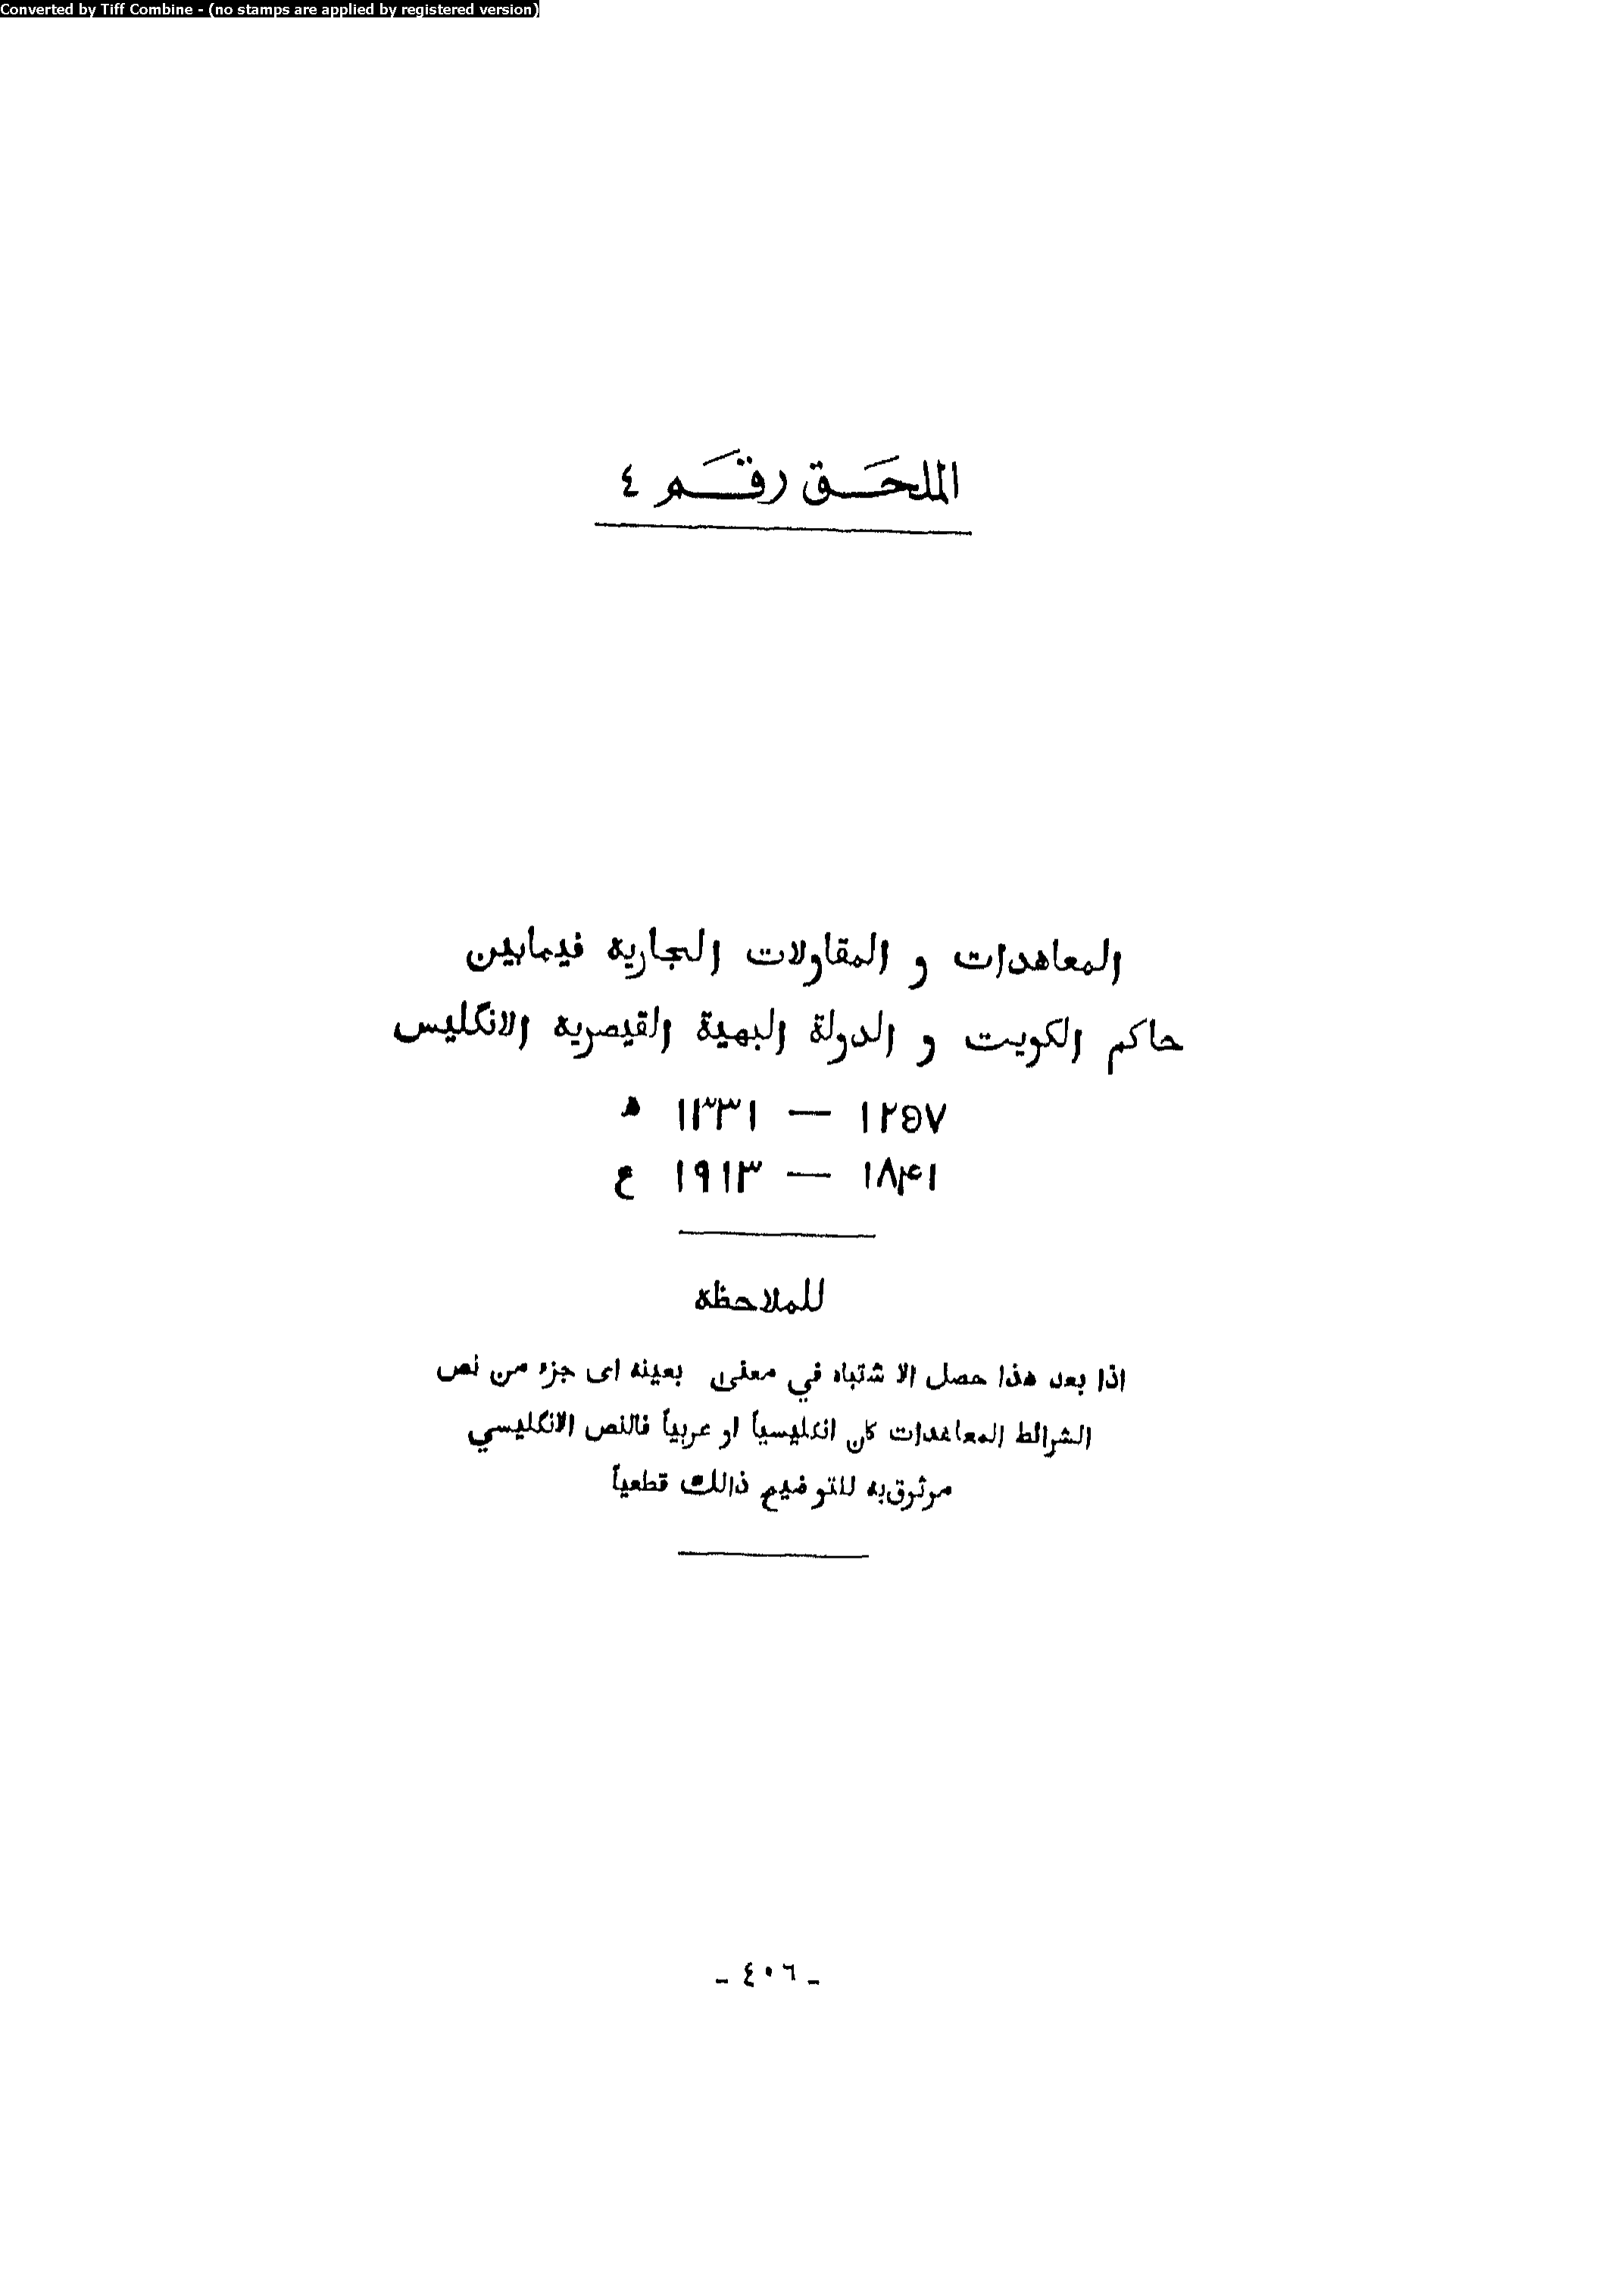 Converted by Tiff Combine - (no stamps are applied by registered version)
الملحَق رقَم ٤
المعاهدات و المقاولات التجاريه فيمابين
حاكم الكويت و الدولة البهية القيصريه الانگليس
١٢٥٧ — ١٣٣١ ه
١٨۴١ — ١٩١٣ ع
للملاحظه
اذا بعد هذا حصل الا شتباه في معنى بعينه اى جزء من نص
الشرائط المعاهدات كان انگليسياً او عربياً فالنص الانگليسي
موثوق به للتوضيح ذالك قطعياً
- ٤٠٦ -